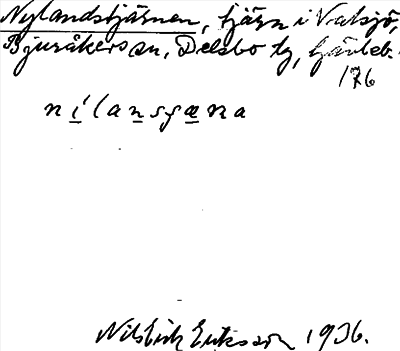 Nylandstjärnen, tjärn i Valsjö,
Bjuråkers sn, Delsbo tg, Gävleb.
176
nílansγæna
Nils Erik Eriksson 1936.